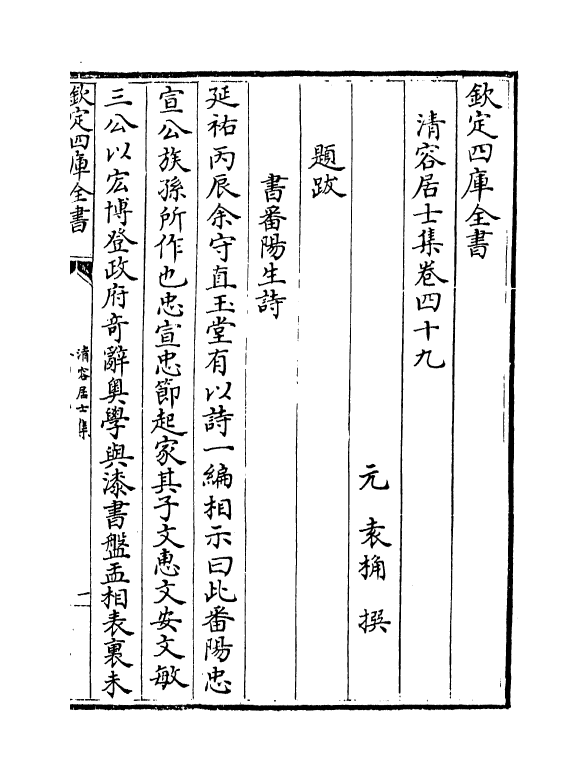 欽定四庫全書
清容居士集卷四十九
元 袁桷 撰
題跋
書番陽生詩
延祐丙辰余守直玉堂有以詩一編相示曰此番陽忠
宣公族孫所作也忠宣忠節起家其子文惠文安文敏
三公以宏博登政府奇辭奥學與漆書盤盂相表裏未
欽定四庫全書
清容居士集
一